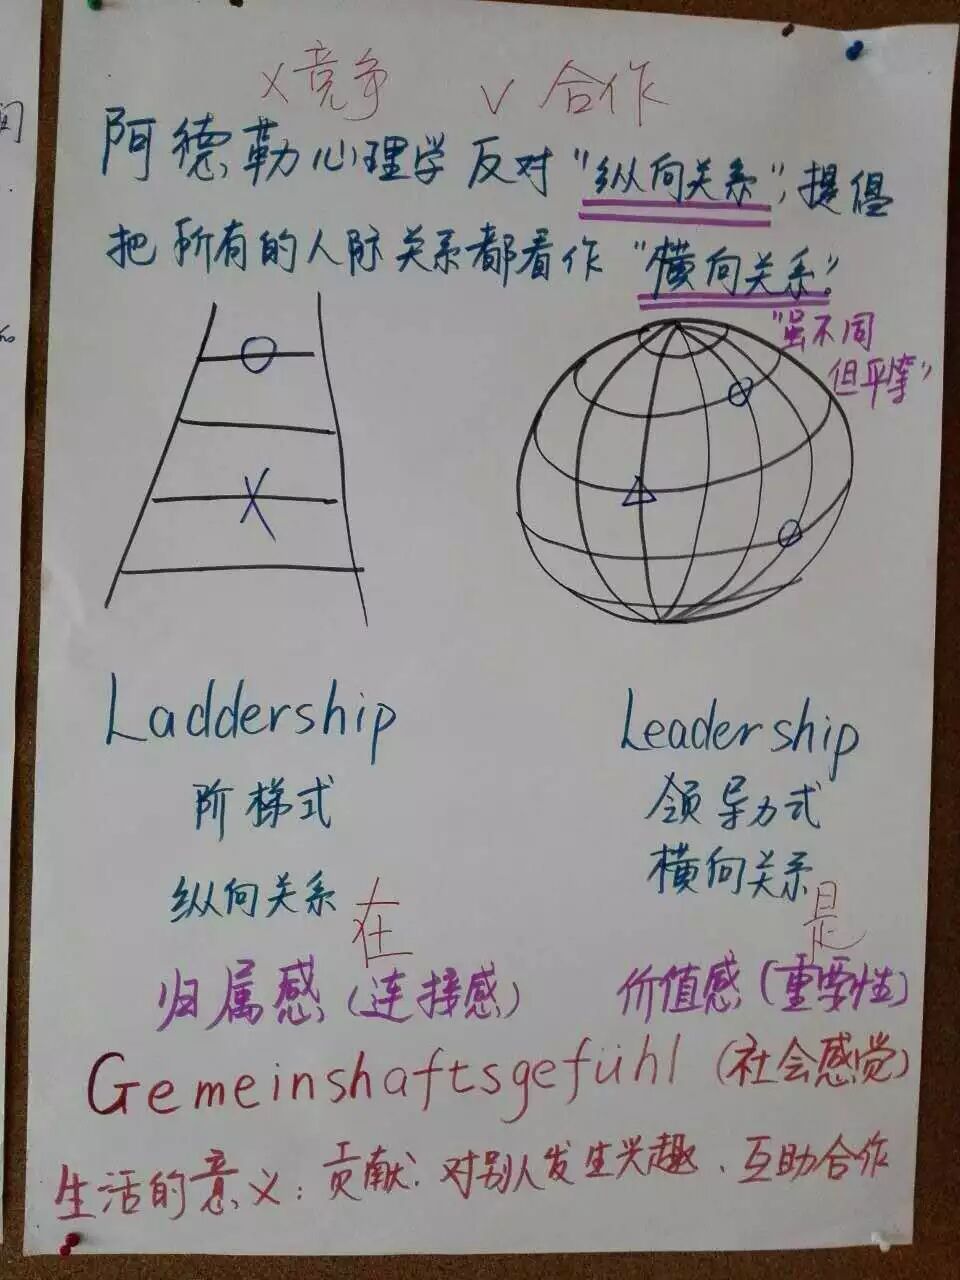 ×竞争 √合作
阿德勒心理学反对"纵向关系",提倡
把所有的人际关系都看作"横向关系"。
"虽不同
但平等"
Laddership
阶梯式
纵向关系
Leadership
领导力式
横向关系
在
是
归属感(连接感) 价值感(重要性)
Gemeinshaftsgefühl (社会感觉)
生活的意义:贡献、对别人发生兴趣、互助合作
间